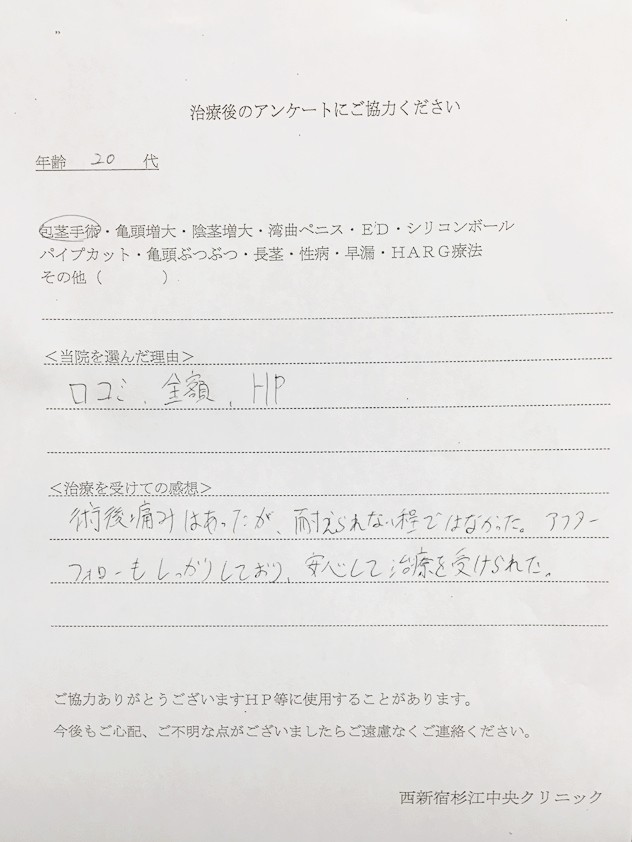 治療後のアンケートにご協力ください
年齢 20 代
包茎手術・亀頭増大・陰茎増大・湾曲ペニス・ED・シリコンボール
パイプカット・亀頭ぶつぶつ・長茎・性病・早漏・HARG療法
その他（　　　）
＜当院を選んだ理由＞
口コミ、金額、HP
＜治療を受けての感想＞
術後痛みはあったが、耐えられない程ではなかった。アフター
フォローもしっかりしており、安心して治療を受けられた。
ご協力ありがとうございますHP等に使用することがあります。
今後もご心配、ご不明な点がございましたらご遠慮なくご連絡ください。
西新宿杉江中央クリニック